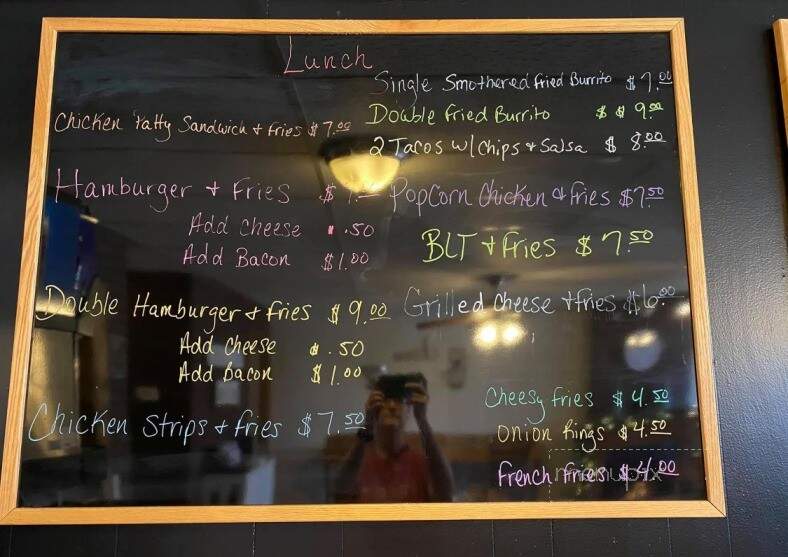 Lunch
Chicken Patty Sandwich + Fries $ 7.00
Hamburger + Fries $
Add Cheese .50
Add Bacon $1.00
Double Hamburger + Fries $ 9.00
Add Cheese $ .50
Add Bacon $ 1.00
Chicken Strips + Fries $ 7.50
Single Smothered Fried Burrito $ 7.00
Double Fried Burrito $ $ 9.00
2 Tacos w/ Chips + Salsa $ 8.00
PopCorn Chicken & Fries $7.50
BLT + Fries $ 7.50
Grilled Cheese + Fries $6.00
Cheesy Fries $ 4.50
Onion Rings $ 4.50
French Fries $ 4.00